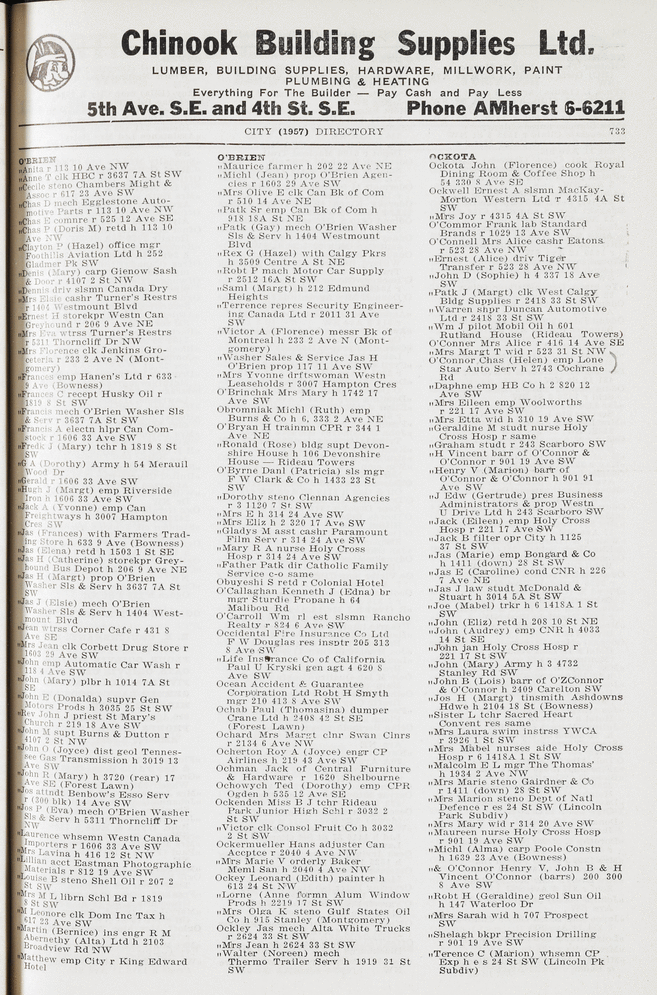 Chinook Building Supplies Ltd.
LUMBER, BUILDING SUPPLIES, HARDWARE, MILLWORK, PAINT
PLUMBING & HEATING
Everything For The Builder — Pay Cash and Pay Less
5th Ave. S.E. and 4th St. S.E. Phone AMherst 6-6211
CITY (1957) DIRECTORY 733
O'BRIEN
„Anita r 113 10 Ave NW
„Anne T clk HBC r 3637 7A St SW
„Cecile steno Chambers Might &
Assoc r 617 23 Ave SW
„Chas D mech Egglestone Auto-
motive Parts r 113 10 Ave NW
„Chas E comnre r 525 12 Ave SE
„Chas P (Doris M) retd h 113 10
Ave NW
„Clayton P (Hazel) office mgr
Foothills Aviation Ltd h 252
Gladmer Pk SW
„Denis (Mary) carp Gienow Sash
& Door r 4107 2 St NW
„Dennis driv slsmn Canada Dry
„Mrs Elsie cashr Turner's Restrs
r 1404 Westmount Blvd
„Ernest H storekpr Westn Can
Greyhound r 206 9 Ave NE
„Mrs Eva wtrss Turner's Restrs
r 5311 Thorncliff Dr NW
„Mrs Florence clk Jenkins Gro-
ceteria r 233 2 Ave N (Mont-
gomery)
„Frances emp Hanen's Ltd r 633
9 Ave (Bowness)
„Frances C recept Husky Oil r
1819 8 St SW
„Francis mech O'Brien Washer Sls
& Serv r 3637 7A St SW
„Francis A electn hlpr Can Com-
stock r 1606 33 Ave SW
„Fredk J (Mary) tchr h 1819 8 St
SW
„G A (Dorothy) Army h 54 Merauil
Wood Dr
„Gerald r 1606 33 Ave SW
„Hugh J (Margt) emp Riverside
Iron h 1606 33 Ave SW
„Jack A (Yvonne) emp Can
Freightways h 3007 Hampton
Cres SW
„Jas (Frances) with Farmers Trad-
ing Store h 633 9 Ave (Bowness)
„Jas (Elena) retd h 1503 1 St SE
„Jas H (Catherine) storekpr Grey-
hound Bus Depot h 206 9 Ave NE
„Jas H (Margt) prop O'Brien
Washer Sls & Serv h 3637 7A St
SW
„Jas J (Elsie) mech O'Brien
Washer Sls & Serv h 1404 West-
mount Blvd
„Jean wtrss Corner Cafe r 431 8
Ave SE
„Mrs Jean clk Corbett Drug Store r
1603 29 Ave SW
„John emp Automatic Car Wash r
118 4 Ave SW
„John (Mary) plbr h 1014 7A St
SE
„John E (Donalda) supvr Gen
Motors Prods h 3035 25 St SW
„Rev John J priest St Mary's
Church r 219 18 Ave SW
„John M supt Burns & Dutton r
4107 2 St NW
„John O (Joyce) dist geol Tennes-
see Gas Transmission h 3019 13
Ave SW
„John R (Mary) h 3720 (rear) 17
Ave SE (Forest Lawn)
„Jos attndt Benbow's Esso Serv
r (300 blk) 14 Ave SW
„Jos P (Eva) mech O'Brien Washer
Sls & Serv h 5311 Thorncliff Dr
NW
„Laurence whsemn Westn Canada
Importers r 1606 33 Ave SW
„Mrs Lavina h 416 12 St NW
„Lillian acct Eastman Photographic
Materials r 812 19 Ave SW
„Louise B steno Shell Oil r 207 2
St SW
„Mrs M L librn Schl Bd r 1819
8 St SW
„M Leonore clk Dom Inc Tax h
617 23 Ave SW
„Martin (Bernice) ins engr R M
Abernethy (Alta) Ltd h 2103
Broadview Rd NW
„Matthew emp City r King Edward
Hotel
O'BRIEN
„Maurice farmer h 202 22 Ave NE
„Michl (Jean) prop O'Brien Agen-
cies r 1603 29 Ave SW
„Mrs Olive E clk Can Bk of Com
r 510 14 Ave NE
„Patk Sr emp Can Bk of Com h
918 18A St NE
„Patk (Gay) mech O'Brien Washer
Sls & Serv h 1404 Westmount
Blvd
„Rex G (Hazel) with Calgy Pkrs
h 3509 Centre A St NE
„Robt P mach Motor Car Supply
r 2512 16A St SW
„Saml (Margt) h 212 Edmund
Heights
„Terrence repres Security Engineer-
ing Canada Ltd r 2011 31 Ave
SW
„Victor A (Florence) messr Bk of
Montreal h 233 2 Ave N (Mont-
gomery)
„Washer Sales & Service Jas H
O'Brien prop 117 11 Ave SW
„Mrs Yvonne drftswoman Westn
Leaseholds r 3007 Hampton Cres
O'Brinchak Mrs Mary h 1742 17
Ave SW
Obromniak Michl (Ruth) emp
Burns & Co h 6, 333 2 Ave NE
O'Bryan H trainmn CPR r 344 1
Ave NE
„Ronald (Rose) bldg supt Devon-
shire House h 106 Devonshire
House — Rideau Towers
O'Byrne Danl (Patricia) sls mgr
F W Clark & Co h 1433 23 St
SW
„Dorothy steno Clennan Agencies
r 3 1120 7 St SW
„Mrs E h 314 24 Ave SW
„Mrs Eliz h 2 320 17 Ave SW
„Gladys M asst cashr Paramount
Film Serv r 314 24 Ave SW
„Mary R A nurse Holy Cross
Hosp r 314 24 Ave SW
„Father Patk dir Catholic Family
Service c-o same
Obuyeshi S retd r Colonial Hotel
O'Callaghan Kenneth J (Edna) br
mgr Sturdie Propane h 64
Malibou Rd
O'Carroll Wm rl est slsmn Rancho
Realty r 824 6 Ave SW
Occidental Fire Insurance Co Ltd
F W Douglas res insptr 205 313
8 Ave SW
„Life Insurance Co of California
Paul U Kryski gen agt 4 620 8
Ave SW
Ocean Accident & Guarantee
Corporation Ltd Robt H Smyth
mgr 210 413 8 Ave SW
Ochab Paul (Thomasina) dumper
Crane Ltd h 2408 42 St SE
(Forest Lawn)
Ochard Mrs Margt clnr Swan Clnrs
r 2134 6 Ave NW
Ocherton Roy A (Joyce) engr CP
Airlines h 219 43 Ave SW
Ochman Jack of Central Furniture
& Hardware r 1620 Shelbourne
Ochowych Ted (Dorothy) emp CPR
Ogden h 535 12 Ave SE
Ockenden Miss B J tchr Rideau
Park Junior High Schl r 3032 2
St SW
„Victor clk Consol Fruit Co h 3032
2 St SW
Ockermueller Hans adjuster Can
Accptce r 2040 4 Ave NW
„Mrs Marie V orderly Baker
Meml San h 2040 4 Ave NW
Ockey Leonard (Edith) painter h
613 24 St NW
„Lorne (Anne formn Alum Window
Prods h 2219 17 St SW
„Mrs Olga K steno Gulf States Oil
Co h 915 Stanley (Montgomery)
Ockley Jas mech Alta White Trucks
r 2624 33 St SW
„Mrs Jean h 2624 33 St SW
„Walter (Noreen) mech
Thermo Trailer Serv h 1919 31 St
SW
OCKOTA
Ockota John (Florence) cook Royal
Dining Room & Coffee Shop h
54 330 8 Ave SE
Ockwell Ernest A slsmn MacKay-
Morton Western Ltd r 4315 4A St
SW
„Mrs Joy r 4315 4A St SW
O'Commor Frank lab Standard
Brands r 1029 13 Ave SW
O'Connell Mrs Alice cashr Eatons
r 523 28 Ave NW
„Ernest (Alice) driv Tiger
Transfer r 523 28 Ave NW
„John D (Sophie) h 4 337 18 Ave
SW
„Patk J (Margt) clk West Calgy
Bldg Supplies r 2418 33 St SW
„Warren shpr Duncan Automotive
Ltd r 2418 33 St SW
„Wm J pilot Mobil Oil h 601
Rutland House (Rideau Towers)
O'Conner Mrs Alice r 416 14 Ave SE
„Mrs Margt T wid r 523 31 St NW
O'Connor Chas (Helen) emp Lone
Star Auto Serv h 2743 Cochrane
Rd
„Daphne emp HB Co h 2 820 12
Ave SW
„Mrs Eileen emp Woolworths
r 221 17 Ave SW
„Mrs Etta wid h 310 19 Ave SW
„Geraldine M studt nurse Holy
Cross Hosp r same
„Graham studt r 243 Scarboro SW
„H Vincent barr of O'Connor &
O'Connor r 901 19 Ave SW
„Henry V (Marion) barr of
O'Connor & O'Connor h 901 91
Ave SW
„J Edw (Gertrude) pres Business
Administrators & prop Westn
U Drive Ltd h 243 Scarboro SW
„Jack (Eileen) emp Holy Cross
Hosp r 221 17 Ave SW
„Jack B filter opr City h 1125
37 St SW
„Jas (Marie) emp Bongard & Co
h 1411 (down) 28 St SW
„Jas E (Caroline) cond CNR h 226
7 Ave NE
„Jas J law studt McDonald &
Stuart h 3014 5A St SW
„Joe (Mabel) trkr h 6 1418A 1 St
SW
„John (Eliz) retd h 208 10 St NE
„John (Audrey) emp CNR h 4033
14 St SE
„John jan Holy Cross Hosp r
221 17 St SW
„John (Mary) Army h 3 4732
Stanley Rd SW
„John B (Lois) barr of O'ZConnor
& O'Connor h 2409 Carelton SW
„Jos H (Margt) tinsmith Ashdowns
Hdwe h 2104 18 St (Bowness)
„Sister L tchr Sacred Heart
Convent res same
„Mrs Laura swim instrss YWCA
r 3926 1 St SW
„Mrs Mabel nurses aide Holy Cross
Hosp r 6 1418A 1 St SW
„Malcolm E L mgr The Thomas'
h 1934 2 Ave NW
„Mrs Marie steno Gairdner & Co
r 1411 (down) 28 St SW
„Mrs Marion steno Dept of Natl
Defence r es 24 St SW (Lincoln
Park Subdiv)
„Mrs Mary wid r 314 20 Ave SW
„Maureen nurse Holy Cross Hosp
r 901 19 Ave SW
„Michl (Alma) carp Poole Constn
h 1639 23 Ave (Bowness)
„& O'Connor Henry V, John B & H
Vincent O'Connor (barrs) 200 300
8 Ave SW
„Robt H (Geraldine) geol Sun Oil
h 147 Waterloo Dr
„Mrs Sarah wid h 707 Prospect
SW
„Shelagh bkpr Precision Drilling
r 901 19 Ave SW
„Terence C (Marion) whsemn CP
Exp h e s 24 St SW (Lincoln Pk
Subdiv)